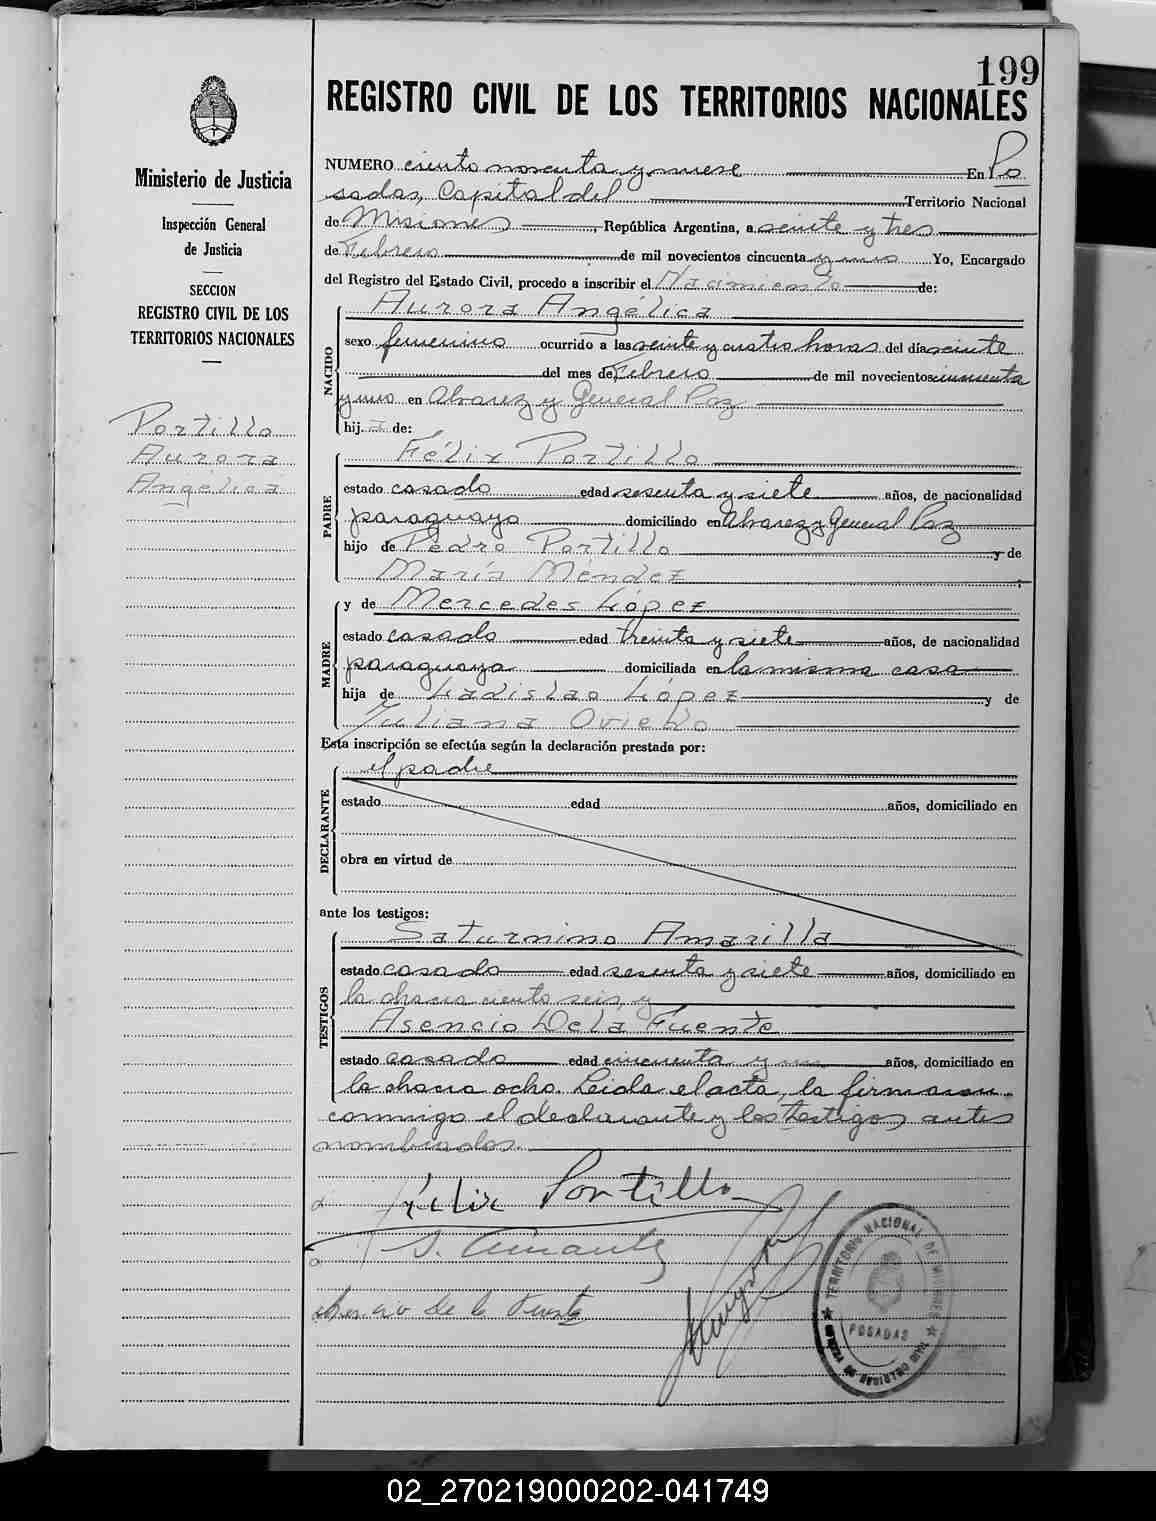 199
REGISTRO CIVIL DE LOS TERRITORIOS NACIONALES
Ministerio de Justicia
Inspección General
de Justicia
SECCION
REGISTRO CIVIL DE LOS
TERRITORIOS NACIONALES
Portillo
Aurora
Angélica
NUMERO ciento noventa y nueve En Po
sadas, Capital del Territorio Nacional
de Misiones, República Argentina, a veinte y tres
de Febrero de mil novecientos cincuenta y uno Yo, Encargado
del Registro del Estado Civil, procedo a inscribir el Nacimiento de:
Aurora Angélica
NACIDO
sexo femenino ocurrido a las veinte y cuatro horas del día veinte
del mes de Febrero de mil novecientos cincuenta
y uno en Alvarez y General Paz
hij a de:
Félix Portillo
PADRE
estado casado edad sesenta y siete años, de nacionalidad
paraguayo domiciliado en Alvarez y General Paz
hijo de Pedro Portillo y de
María Méndez
y de Mercedes López
MADRE
estado casada edad treinta y siete años, de nacionalidad
paraguaya domiciliada en la misma casa
hija de Ladislao López y de
Juliana Oviedo
Esta inscripción se efectúa según la declaración prestada por:
el padre
DECLARANTE
estado edad años, domiciliado en
obra en virtud de
ante los testigos:
Saturnino Amarilla
TESTIGOS
estado casado edad sesenta y siete años, domiciliado en
la chacra ciento seis, y
Asencio De la Fuente
estado casado edad cincuenta y un años, domiciliado en
la chacra ocho. Leida el acta, la firmaron
conmigo el declarante y los testigos antes
nombrados.
Félix Portillo
Asencio De la Fuente
TERRITORIO NACIONAL DE MISIONES
POSADAS
02_270219000202-041749